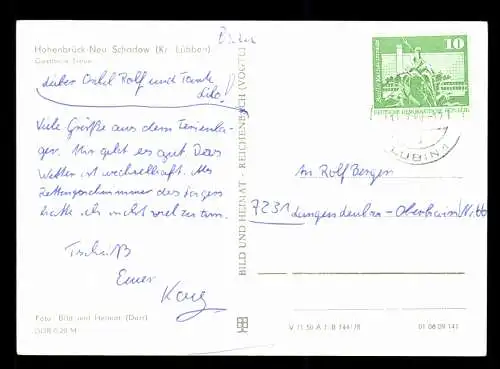 Hohenbrück-Neu Schadow (Kr. Lübben)
Gaststätte Spree
Lieber Onkel Rolf und Tante
Lilo!
Viele Grüße aus dem Ferienla-
ger. Mir geht es gut. Das
Wetter ist wechselhaft. Als
Rettungsschwimmer des Lagers
hatte ich nicht viel zu tun.
Tschüß
Euer
Foto: Bild und Heimat (Darr)
DDR 0,20 M
BILD UND HEIMAT · REICHENBACH (VOGTL)
10
DEUTSCHE DEMOKRATISCHE REPUBLIK
LÜBBEN 1
An Rolf Bergen
7231 Langenleuba-Oberhain
V 11 50 A 1/B 744/78
01 08 09 141